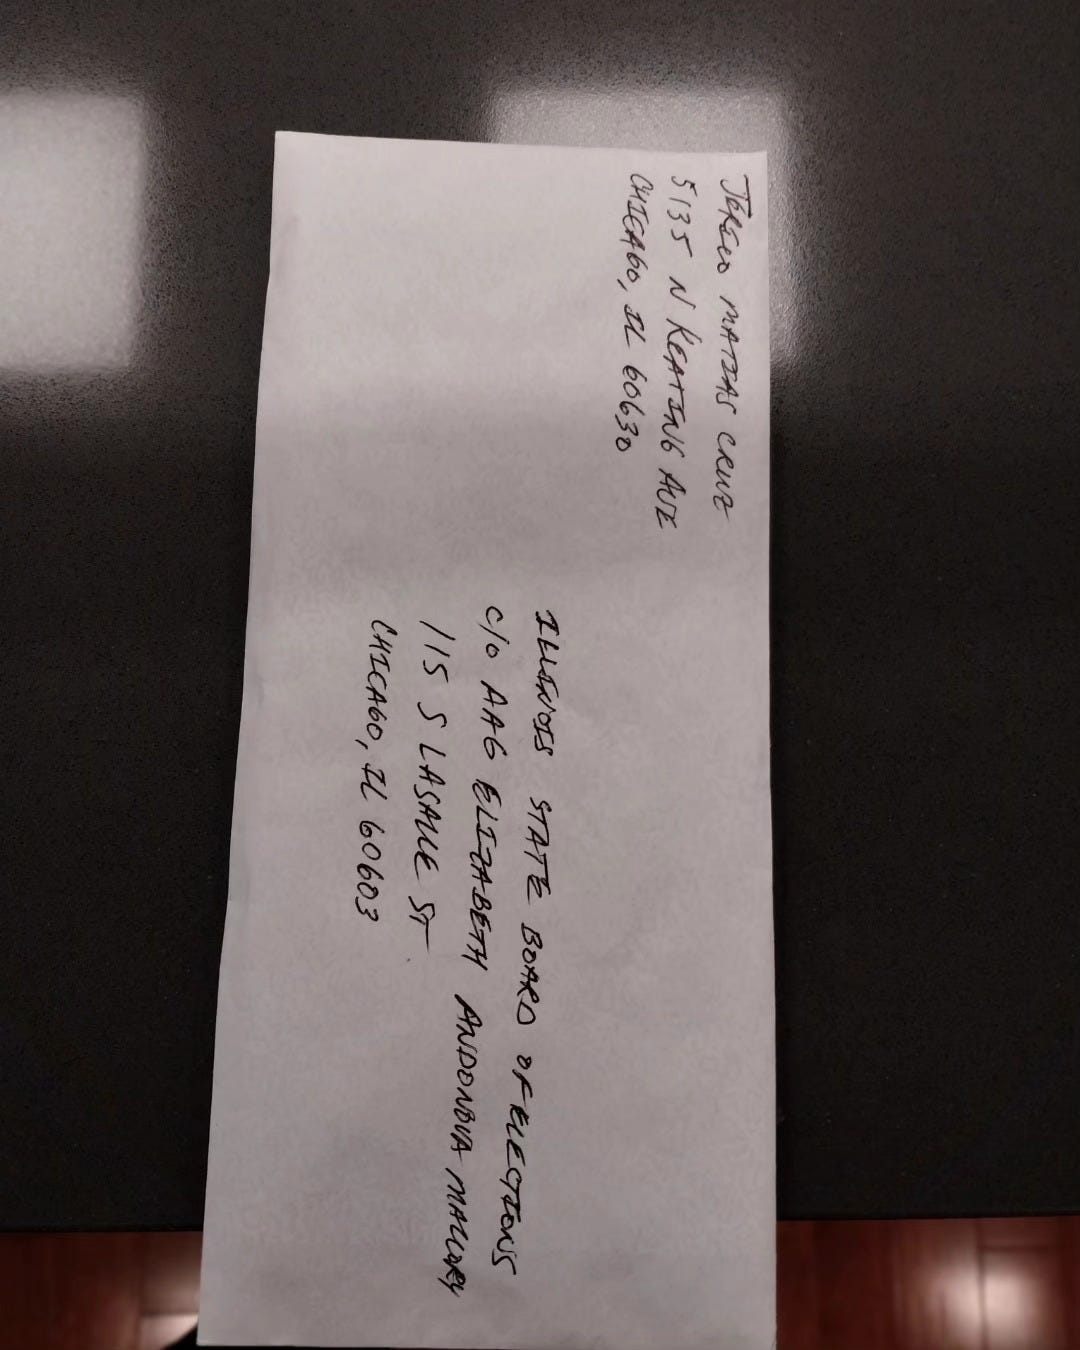 JERICO MATIAS CRUZ
5135 N KEATING AVE
CHICAGO, IL 60630
ILLINOIS STATE BOARD OF ELECTIONS
c/o AAG ELIZABETH ANDONOVA MALLORY
115 S LASALLE ST
CHICAGO, IL 60603